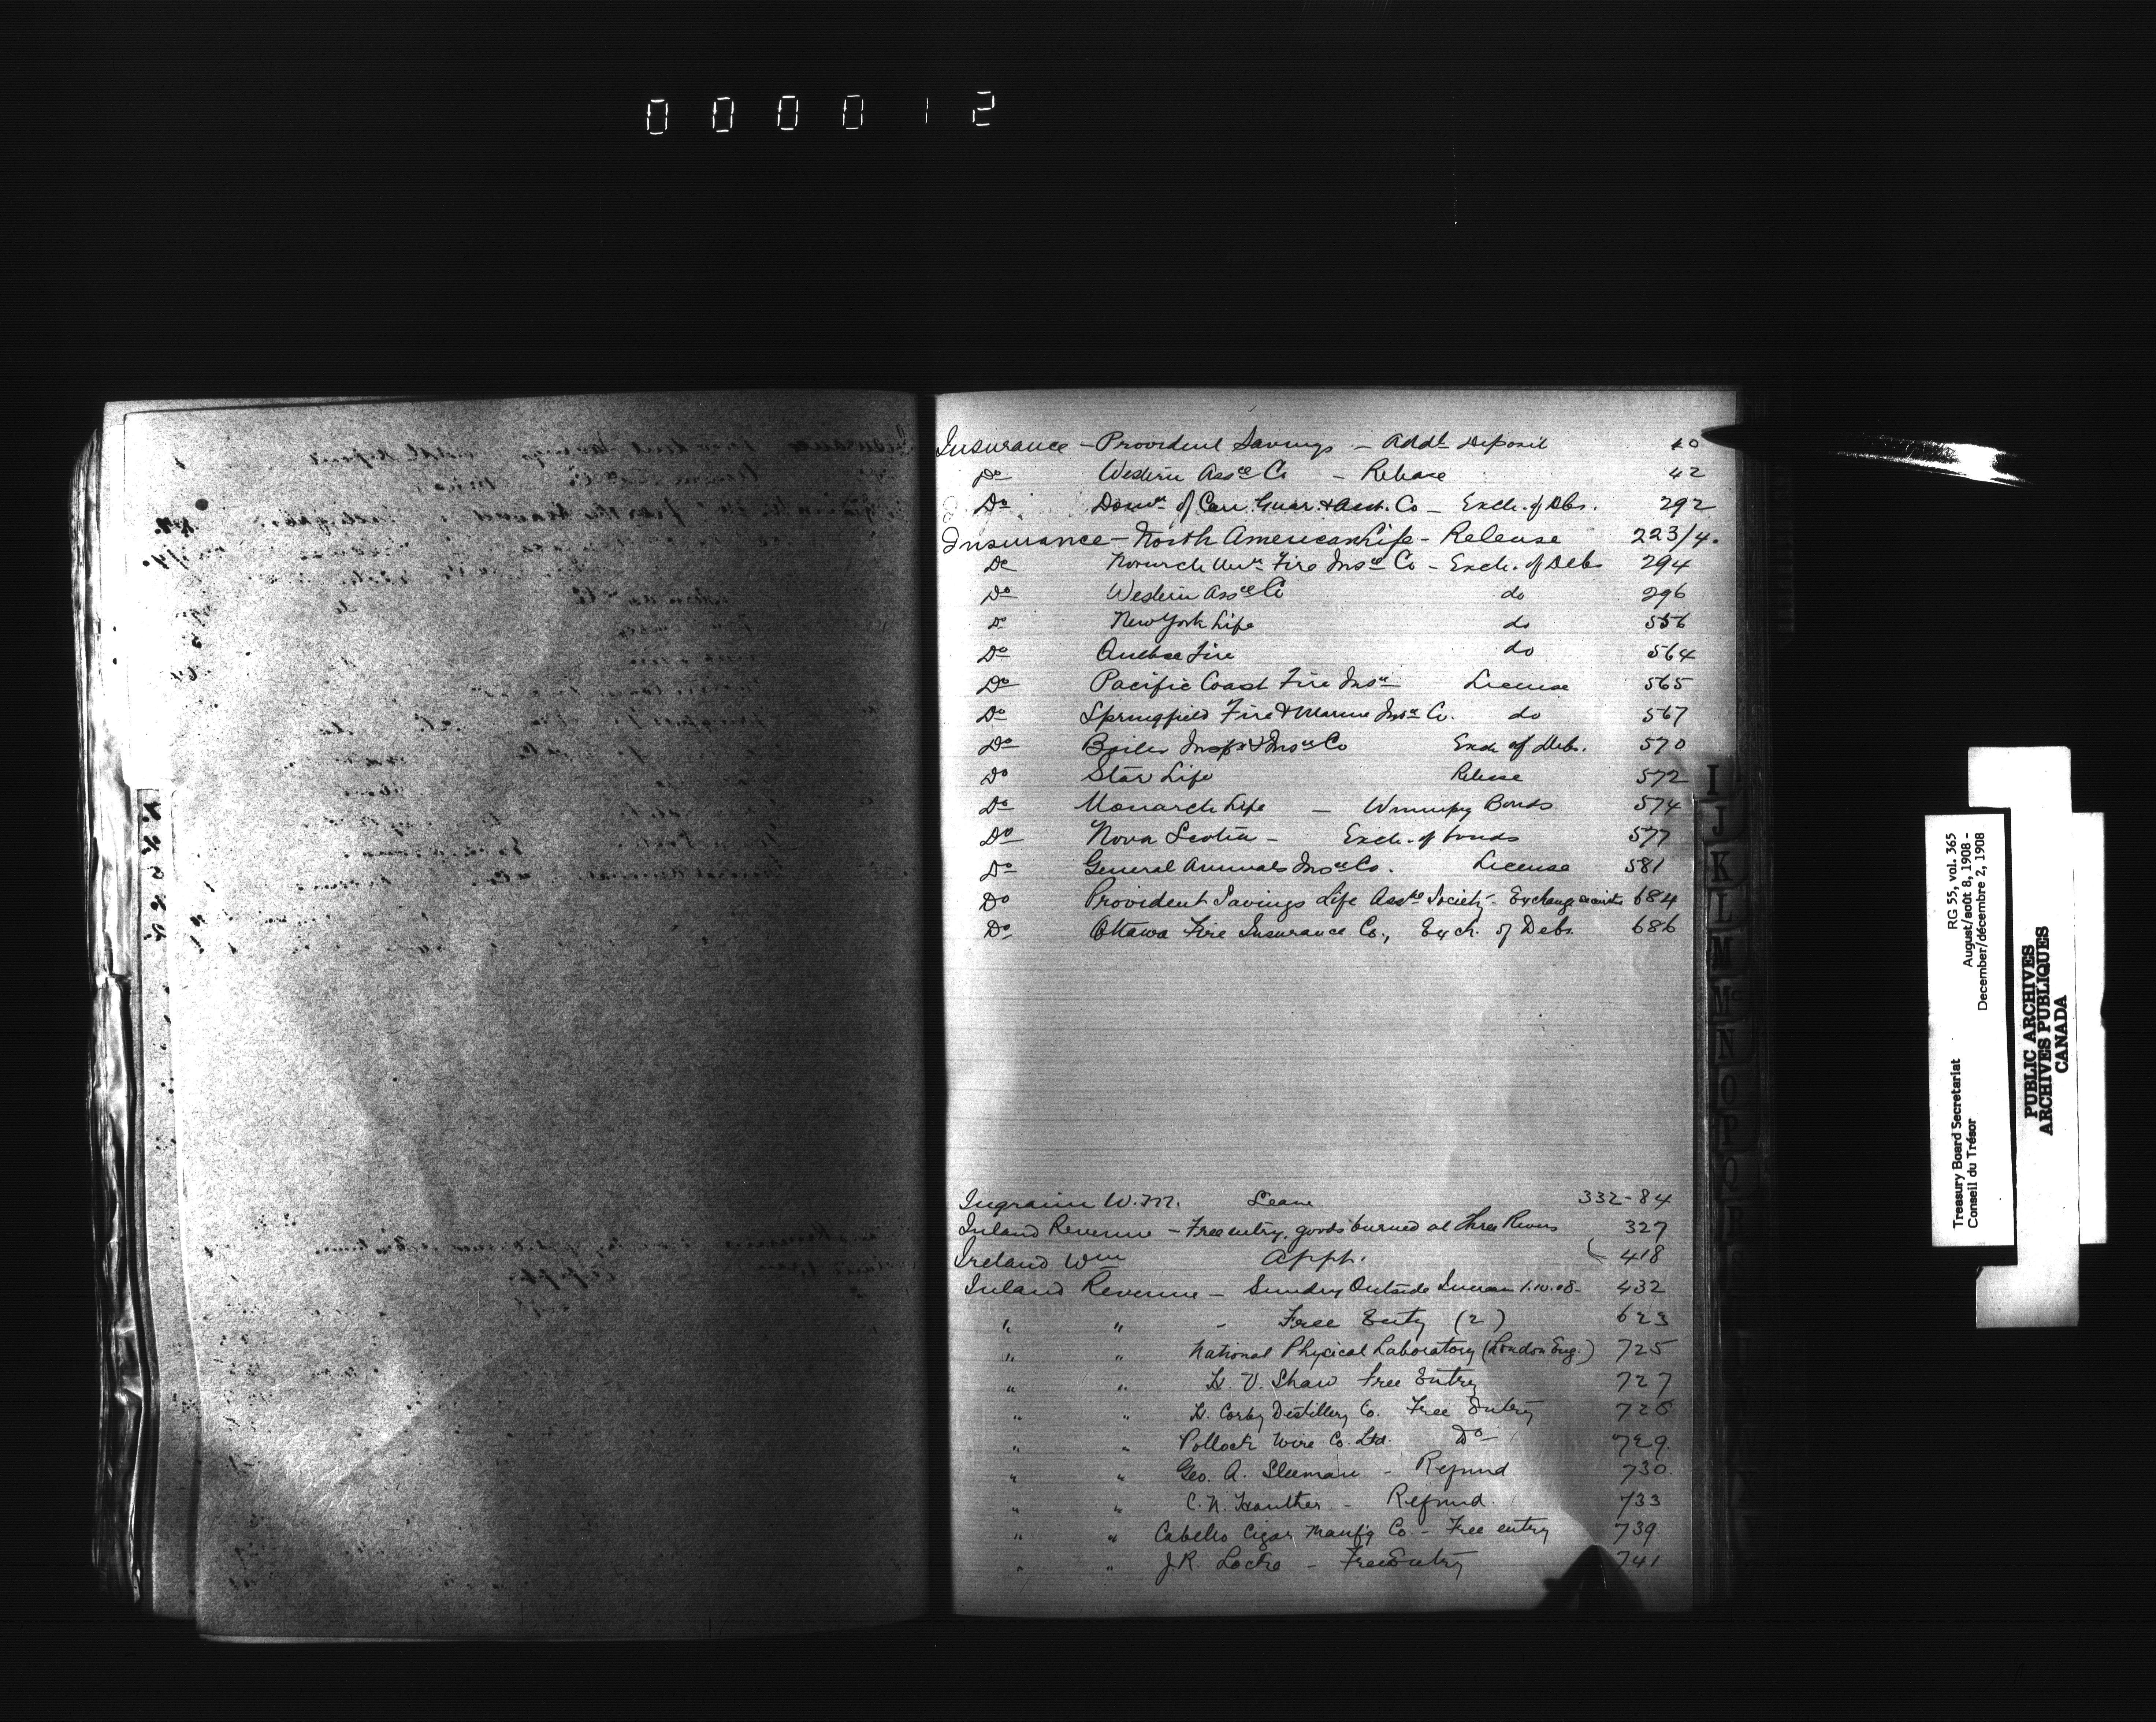 000012
Insurance - Provident Savings - Addl Deposit 40
Do Western Assce Co - Release 42
Do Domn of Can. Guar. & Acct. Co - Exch. of Dbs. 292
Insurance - North American Life - Release 223/4.
Do Fire Insce Co - Exch. of Debs 294
Do Western Assce Co do 296
Do New York Life do 556
Do Quebec Fire do 564
Do Pacific Coast Fire Insce License 565
Do Springfield Fire & Marine Insce Co. do 567
Do Boiler Insp. & Insce Co Exch of Debs. 570
Do Star Life Release 572
Do Monarch Life - Winnipeg Bonds 574
Do Nova Scotia - Exch. of bonds 577
Do General Animals Insce Co. License 581
Do Provident Savings Life Assce Society - Exchange 684
Do Ottawa Fire Insurance Co., Exch. of Debs. 686
Ingraim W. M. Leave 332-84
Inland Revenue - Free entry, goods burned at Three Rivers 327
Ireland Wm Appt. 418
Inland Revenue - Sundry Outside 1.10.08- 432
" " - Free Entry (2) 623
" " National Physical Laboratory (London Eng.) 725
" " H. V. Shaw Free Entry 727
" " H. Corby Distillery Co. Free Entry 728
" " Pollock Wire Co. Ltd. Do 729.
" " Geo. A. Sleeman - Refund 730.
" " C. N. - Refund. 733
" " Cabello Cigar Manfg Co. - Free entry 739
" " J.R. Locke - Free Entry 741
I
J
K
L
M
Mc
N
O
P
Q
R
Treasury Board Secretariat RG 55, vol. 365
Conseil du Trésor August/août 8, 1908 -
December/décembre 2, 1908
PUBLIC ARCHIVES
ARCHIVES PUBLIQUES
CANADA